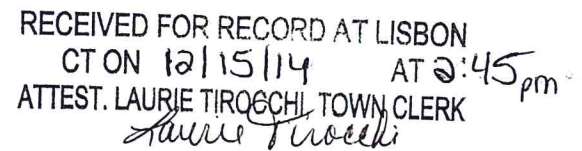 RECEIVED FOR RECORD AT LISBON
CT ON 12/15/14 AT 2:45 pm
ATTEST. LAURIE TIROCCHI, TOWN CLERK
Laurie Tirocchi